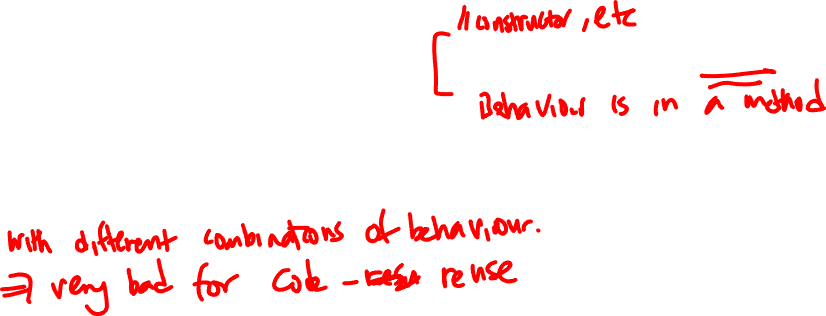 // constructor, etc
Behaviour is in a method
with different combinations of behaviour.
⇒ very bad for code - reuse